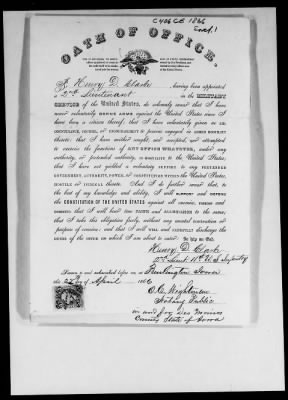 C406 CB 1866
Encl. 1
OATH OF OFFICE.
I, Henry D. Clark, having been appointed
a 2nd Lieutenant in the MILITARY
SERVICE of the United States, do solemnly swear that I have
never voluntarily BORNE ARMS against the United States since I
have been a citizen thereof; that I have voluntarily given NO AID,
COUNTENANCE, COUNSEL, OR ENCOURAGEMENT to persons engaged in ARMED HOSTILITY
thereto; that I have neither sought, nor accepted, nor attempted
to exercise the functions of ANY OFFICE WHATEVER, under any
authority, or pretended authority, in HOSTILITY to the United States;
that I have not yielded a voluntary support to any PRETENDED
GOVERNMENT, AUTHORITY, POWER, OR CONSTITUTION WITHIN THE UNITED STATES,
HOSTILE OR INIMICAL thereto. And I do further swear that, to
the best of my knowledge and ability, I will SUPPORT and DEFEND
the CONSTITUTION OF THE UNITED STATES against all enemies, FOREIGN and
DOMESTIC; that I will bear TRUE FAITH and ALLEGIANCE to the same;
that I take this obligation freely, without any mental reservation or
purpose of evasion; and that I will well and FAITHFULLY discharge the
DUTIES OF THE OFFICE on which I am about to enter. So help me God.
Henry D. Clark
2d Lieut. 11th U.S. Infantry
Sworn to and subscribed before me, at Burlington Iowa
this of April 1866
Notary Public
in and for Des Moines
County State of Iowa